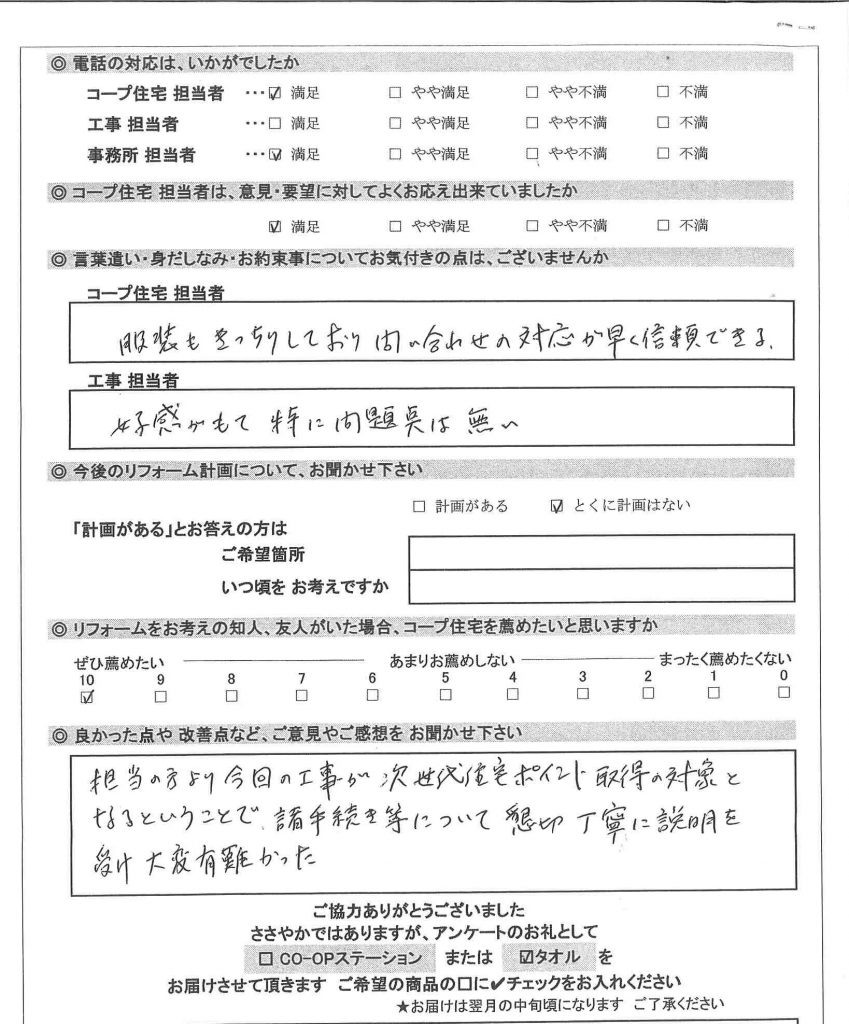 ◎ 電話の対応は、いかがでしたか
コープ住宅 担当者 ･･･☑ 満足 □ やや満足 □ やや不満 □ 不満
工事 担当者 ･･･□ 満足 □ やや満足 □ やや不満 □ 不満
事務所 担当者 ･･･☑ 満足 □ やや満足 □ やや不満 □ 不満
◎ コープ住宅 担当者は、意見・要望に対してよくお応え出来ていましたか
☑ 満足 □ やや満足 □ やや不満 □ 不満
◎ 言葉遣い・身だしなみ・お約束事についてお気付きの点は、ございませんか
コープ住宅 担当者
服装もきっちりしており 問い合わせの対応が早く信頼できる。
工事 担当者
好感がもて 特に問題点は無い
◎ 今後のリフォーム計画について、お聞かせ下さい
□ 計画がある ☑ とくに計画はない
「計画がある」とお答えの方は
ご希望箇所
いつ頃を お考えですか
◎ リフォームをお考えの知人、友人がいた場合、コープ住宅を薦めたいと思いますか
ぜひ薦めたい あまりお薦めしない まったく薦めたくない
10 9 8 7 6 5 4 3 2 1 0
☑ □ □ □ □ □ □ □ □ □ □
◎ 良かった点や 改善点など、ご意見やご感想を お聞かせ下さい
担当の方より今回の工事が次世代住宅ポイント取得の対象と
なるということで、諸手続き等について懇切丁寧に説明を
受け大変有難かった
ご協力ありがとうございました
ささやかではありますが、アンケートのお礼として
□ CO-OPステーション または ☑タオル を
お届けさせて頂きます ご希望の商品の□に✔チェックをお入れください
★お届けは翌月の中旬頃になります ご了承ください